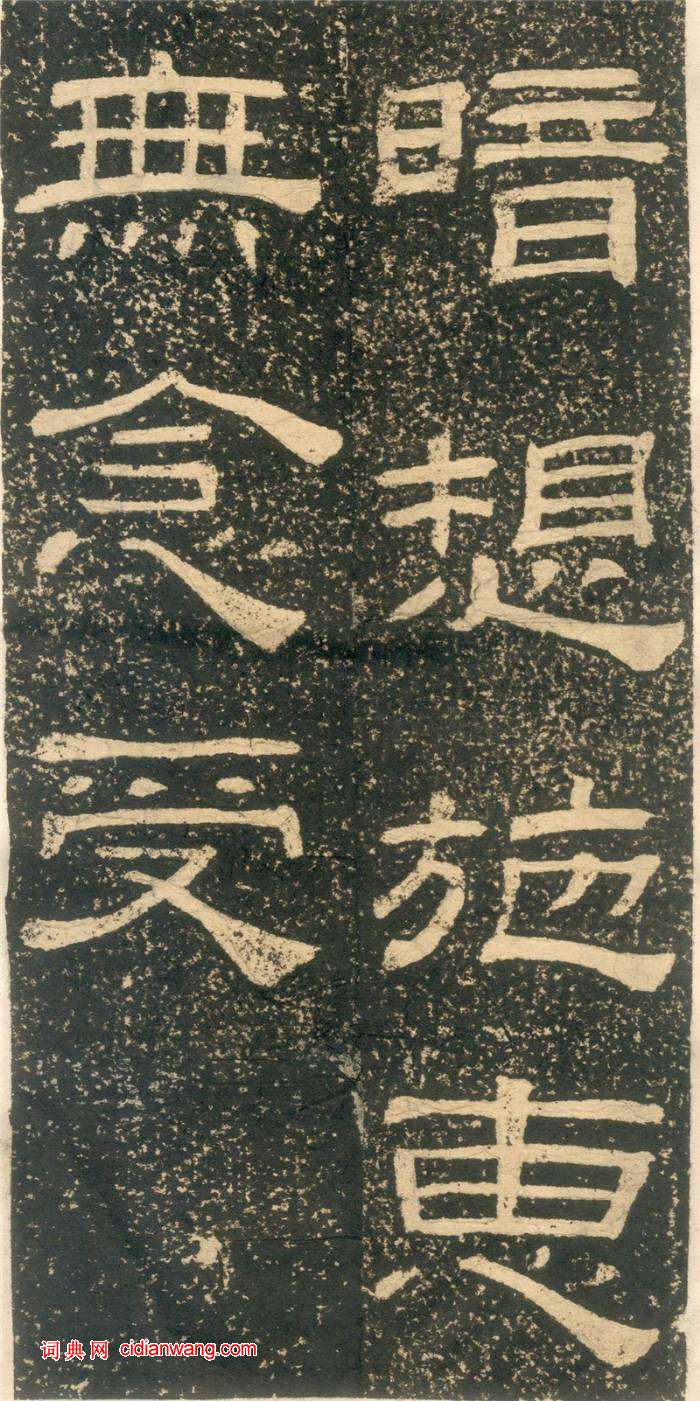 暗想施惠
無念受
词典网 cidianwang.com